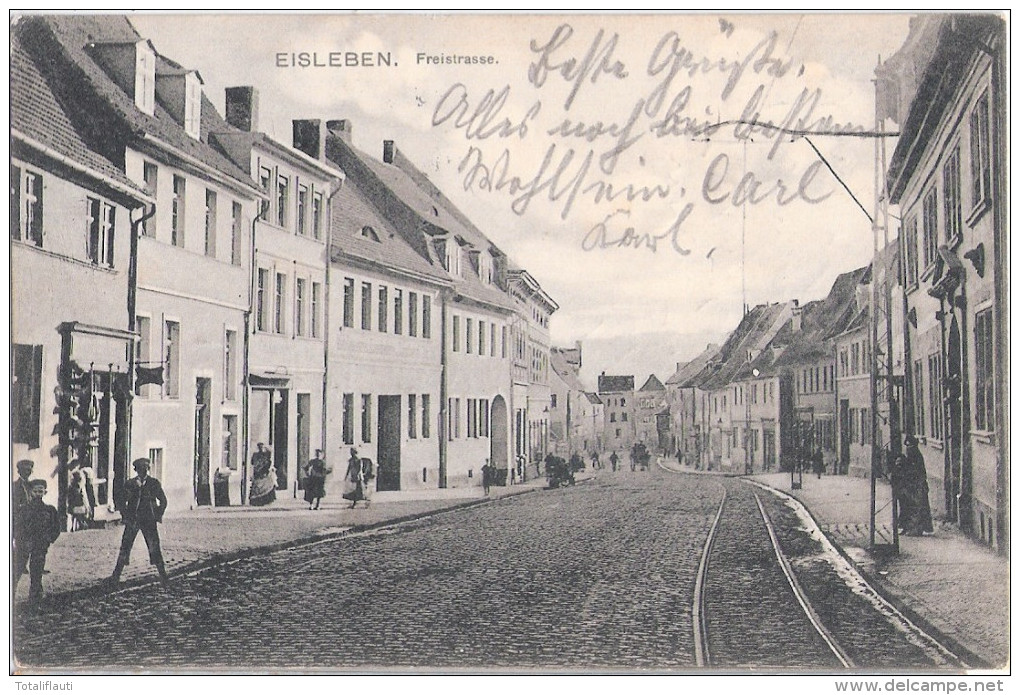 EISLEBEN. Freistrasse.
Beste Grüße.
Alles noch bei bestem
Wohlsein. Carl
Karl.
Totaliflauti
www.delcampe.net